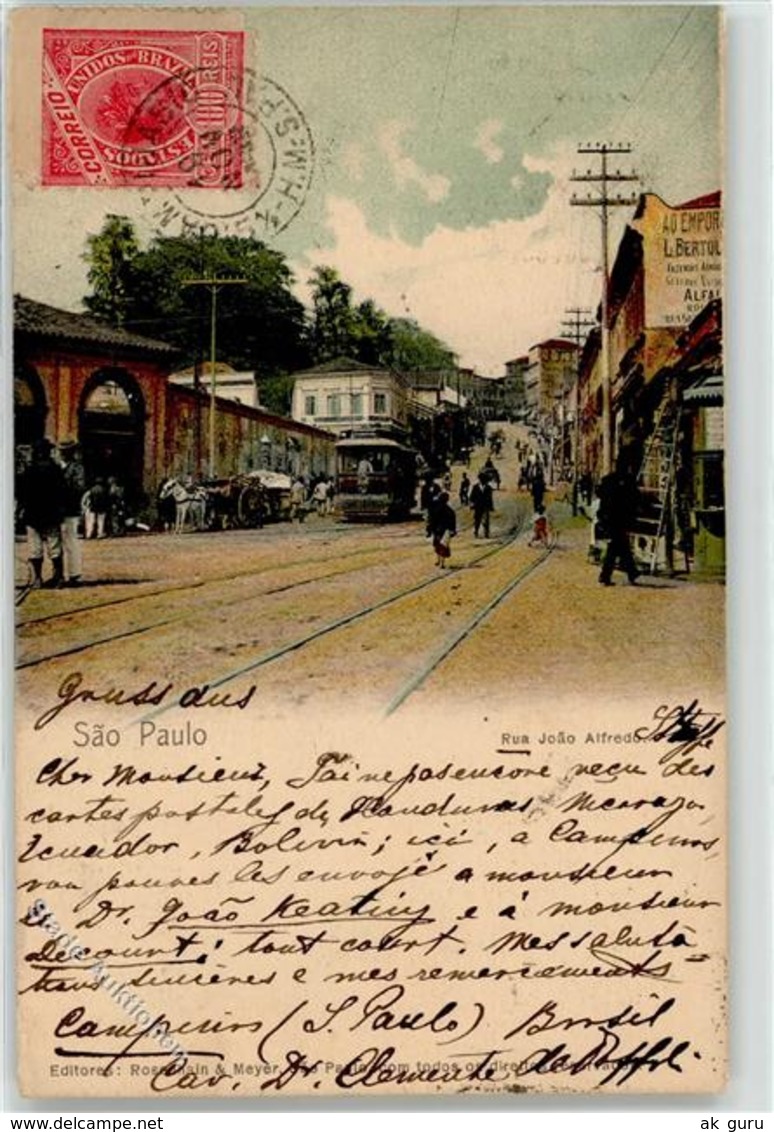 CORREIO
ESTADOS UNIDOS DO BRAZIL
100 REIS
AO EMPOR
L. BERTOL
ALFAI
Gruss aus
São Paulo
Rua João Alfredo.
Cher Monsieur, J'ai ne pas encore reçu des
cartes postales de Honduras, Nicaragua
Ecuador, Bolivia; ici, a Campinas,
vou pouvez les envoyè a monsieur
Dr. João Keating e à monsieur
Decourt; tout court. Mes saluta
tions sincères e mes remerciements
Campinas (S. Paulo) Brasil
Editores: Rosenhain & Meyer, São Paulo, com todos os direitos
Cav. Dr. Clemente de
ak guru